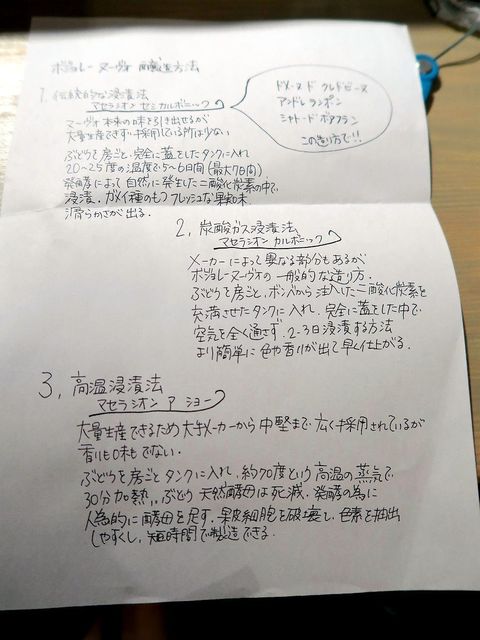 ボジョレーヌーヴォ 醸造方法
1. 伝統的な浸漬法
マセラシオン セミカルボニック
ドメーヌ ド クルドビーヌ
アンドレ ランポン
シャトー ド ボアフラン
この造り方で!!
ヌーヴォ本来の味を引き出せるが
大量生産できず採用している所は少ない
ぶどうを房ごと、完全に蓋をしたタンクに入れ
20~25度の温度で5~6日間(最大7日間)
発酵によって自然に発生した二酸化炭素の中で、
浸漬。ガメイ種のもつフレッシュな果実味
滑らかさが出る。
2. 炭酸ガス浸漬法
マセラシオン カルボニック
メーカーによって異なる部分もあるが
ボジョレーヌーヴォの一般的な造り方。
ぶどうを房ごと、ボンベから注入した二酸化炭素を
充満させたタンクに入れ、完全に蓋をした中で
空気を全く通さず、2~3日浸漬する方法
より簡単に色や香りが出て早く仕上がる。
3, 高温浸漬法
マセラシオン ア ショー
大量生産できるため大手メーカーから中堅まで広く採用されているが
香りも味もでない。
ぶどうを房ごとタンクに入れ、約70度という高温の蒸気で
30分加熱、ぶどう天然酵母は死滅、発酵の為に
人為的に酵母を足す。果皮細胞を破壊し、色素を抽出
しやすくし、短時間で製造できる。